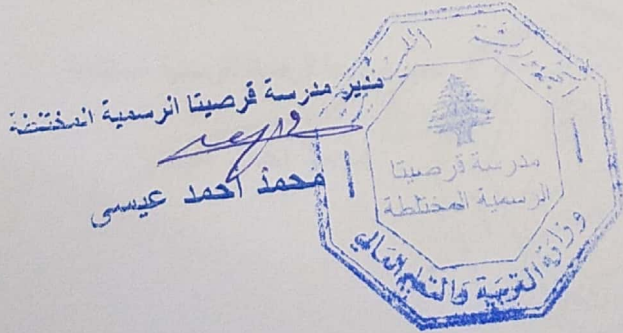 مدير مدرسة قرصيتا الرسمية المختلطة
محمد أحمد عيسى
الجمهورية اللبنانية
مدرسة قرصيتا
الرسمية المختلطة
وزارة التربية والتعليم العالي